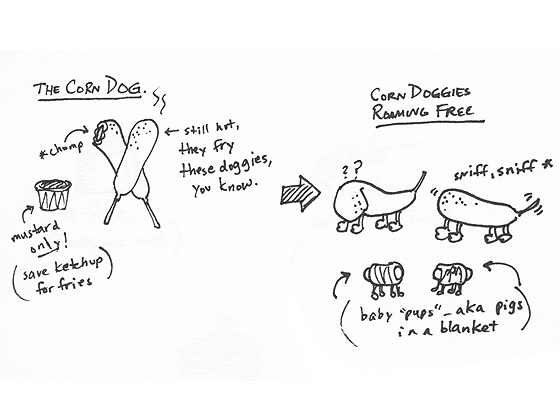 THE CORN DOG.
*chomp
← still hot,
they fry
these doggies,
you know.
mustard
only!
(save ketchup
for fries)
CORN DOGGIES
ROAMING FREE
??
sniff, sniff *
(baby "pups" – aka pigs
in a blanket)